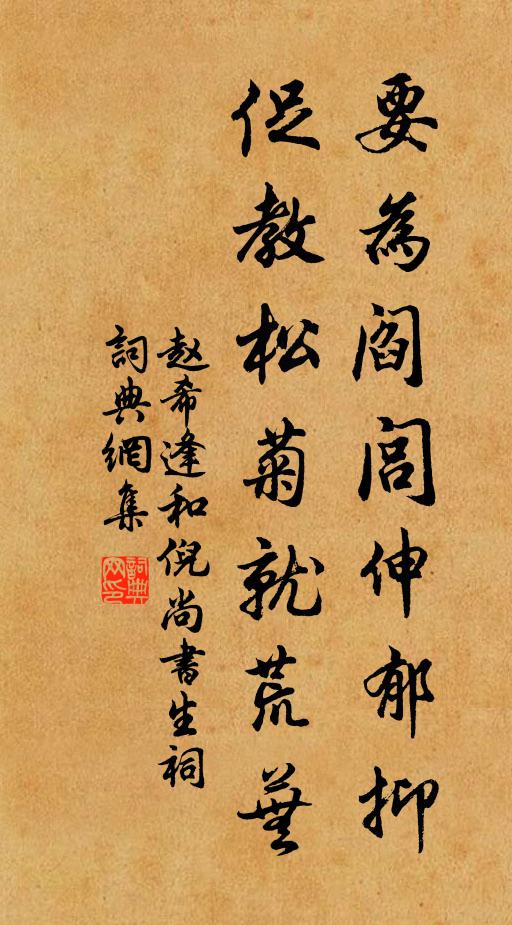 要為閻閭伸郁抑
促教松菊就荒蕪
赵希逢和倪尚書生祠
詞典網集
詞典网印